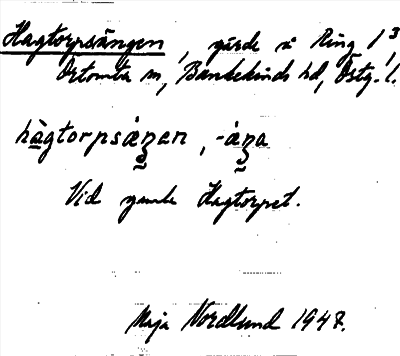 Hagtorpsängen, gärde å Ring 1³,
Örtomta sn, Bankekinds hd, Östg. l.
hàgtorpsäŋen, -äŋa
Vid gamla Hagtorpet.
Maja Nordlund 1947.